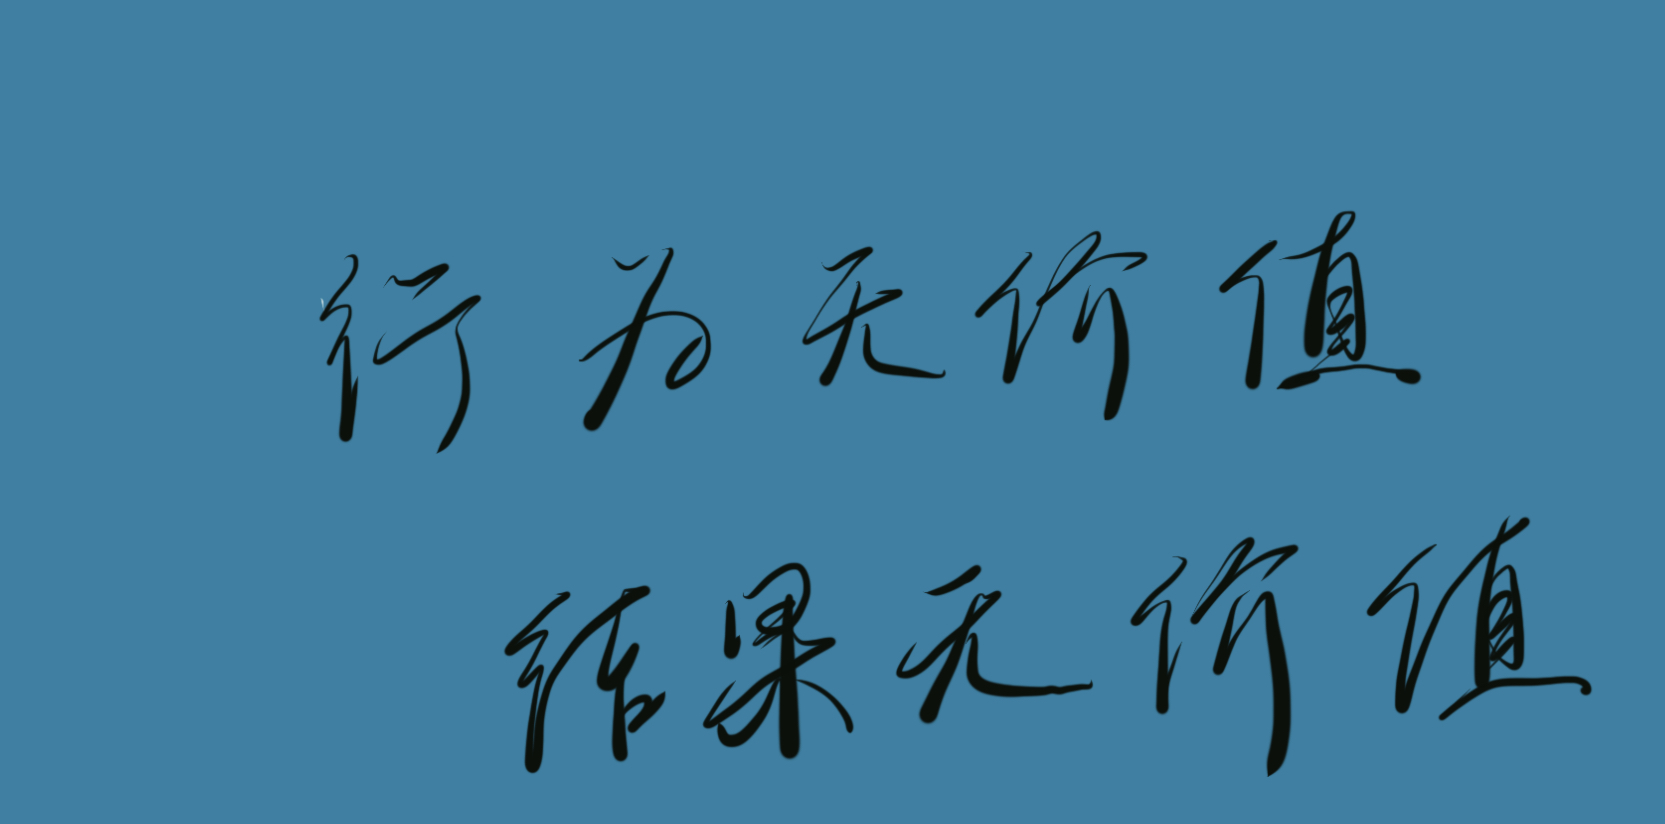 行为无价值
结果无价值